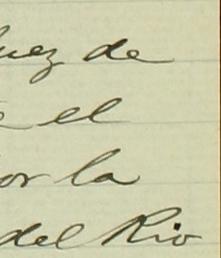 uez de
e el
or la
del Rio